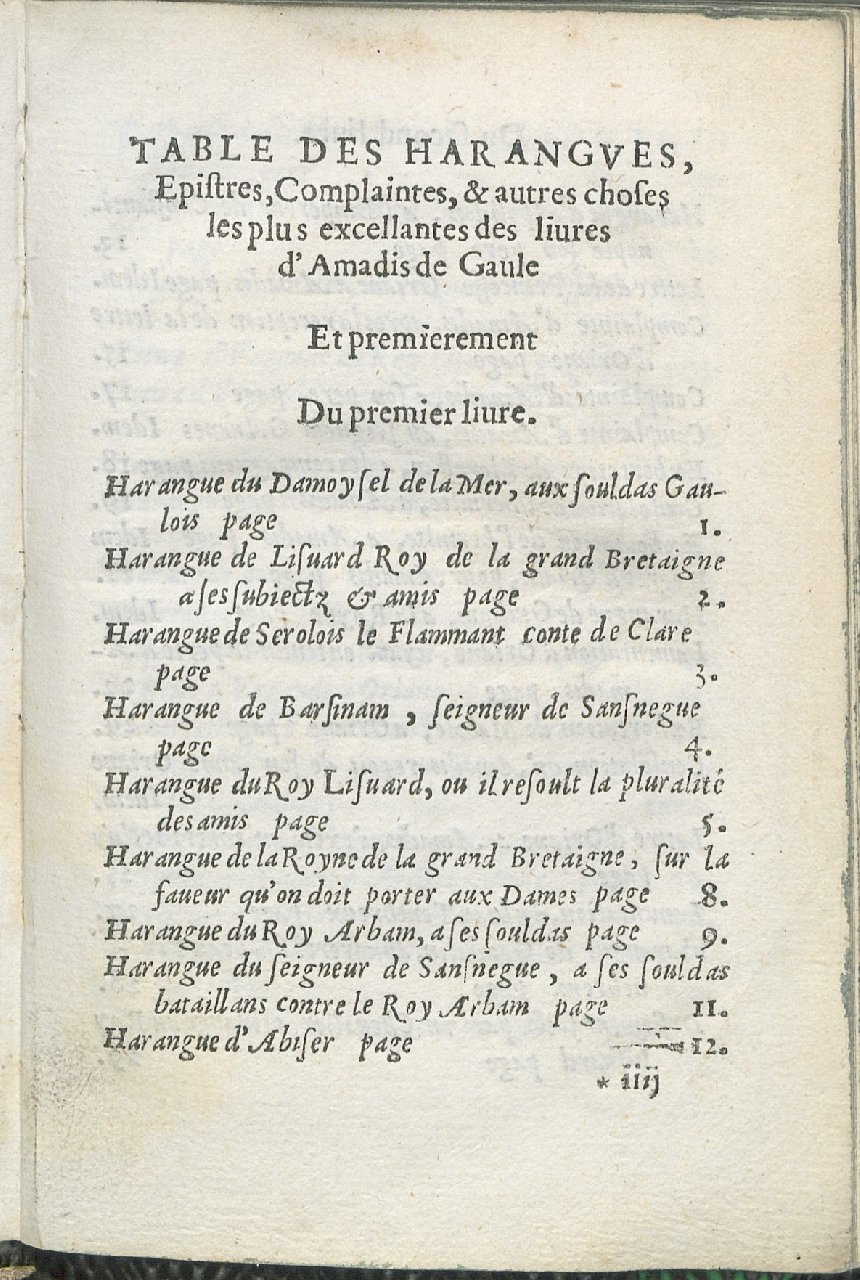 TABLE DES HARANGVES,
Epiſtres, Complaintes, & autres choſes
les plus excellantes des liures
d'Amadis de Gaule
Et premierement
Du premier liure.
Harangue du Damoyſel de la Mer, aux ſouldas Gau-
lois page 1.
Harangue de Liſuard Roy de la grand Bretaigne
a ſes ſubiectz & amis page 2.
Harangue de Serolois le Flammant conte de Clare
page 3.
Harangue de Barſinam, ſeigneur de Sanſnegue
page 4.
Harangue du Roy Liſuard, ou il reſoult la pluralité
des amis page 5.
Harangue de la Royne de la grand Bretaigne, ſur la
faueur qu'on doit porter aux Dames page 8.
Harangue du Roy Arbam, a ſes ſouldas page 9.
Harangue du ſeigneur de Sanſnegue, a ſes ſouldas
bataillans contre le Roy Arbam page 11.
Harangue d'Abiſer page 12.
* iiij